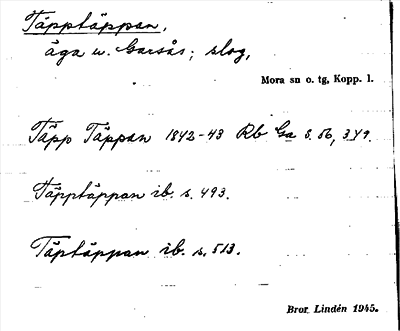 Täpptäppan,
äga u. Garsås; slog,
Mora sn o. tg, Kopp. l.
Täpp Täppan 1842-43 Rb Ga s. 56, 349.
Täpptäppan ib. s. 493.
Täptäppan ib. s. 513.
Bror Lindén 1945.